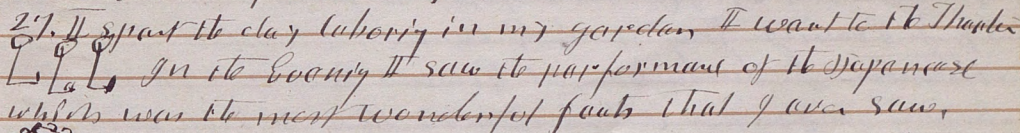 27. I spent the day laboriy in my garden I want to the Theater
In the Evenig I saw the performanc of the Japanease
which was the most wonderful feats that I ever saw.